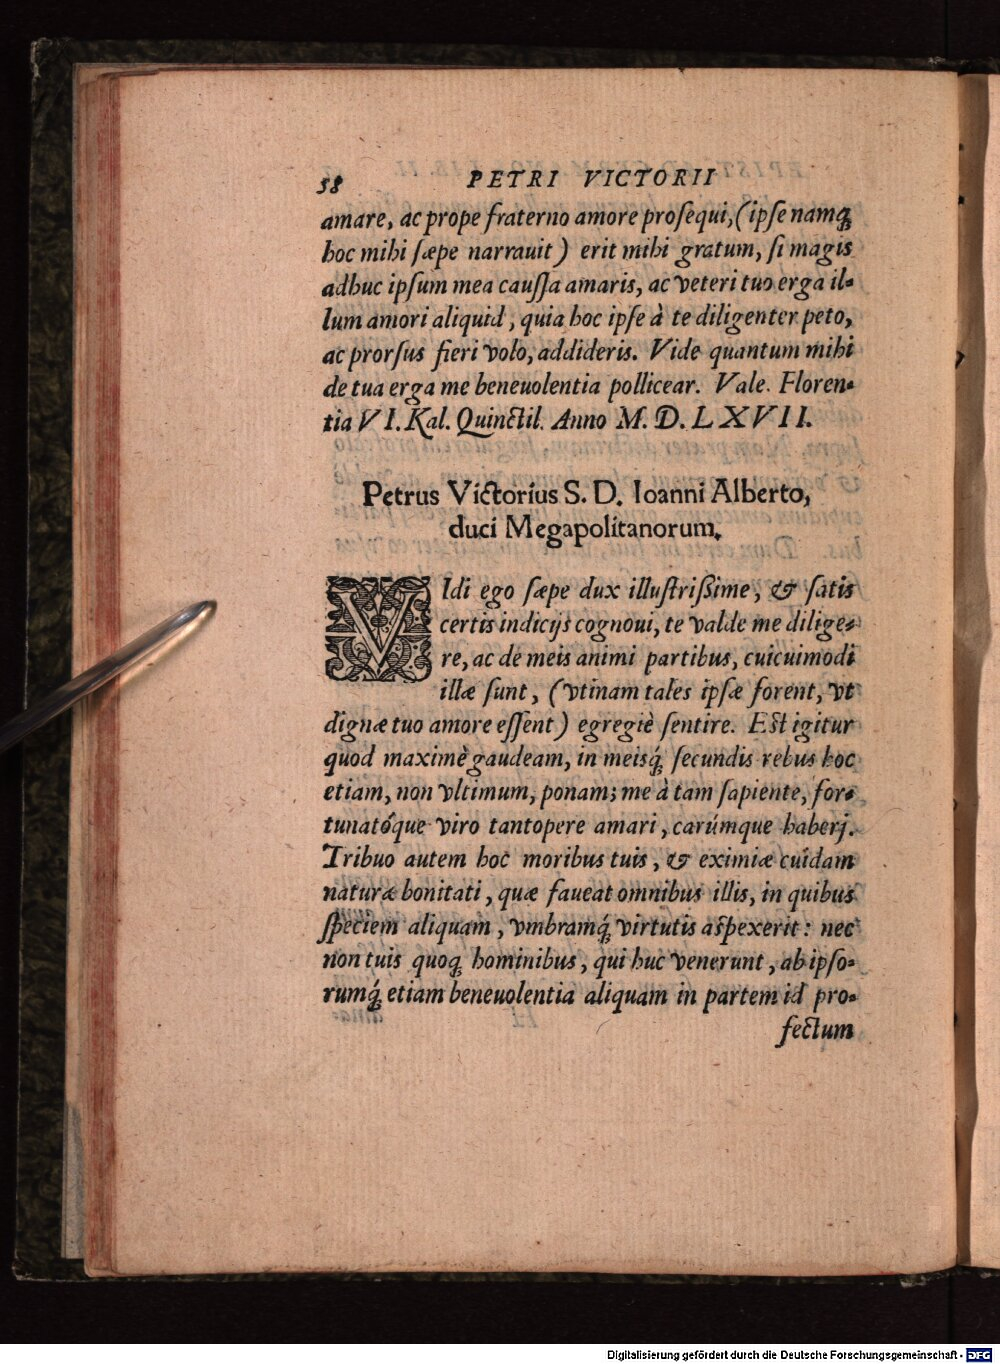 58 PETRI VICTORII
amare, ac prope fraterno amore proſequi, (ipſe namq́;
hoc mihi ſæpe narrauit) erit mihi gratum, ſi magis
adhuc ipſum mea cauſſa amaris, ac veteri tuo erga il-
lum amori aliquid, quia hoc ipſe à te diligenter peto,
ac prorſus fieri volo, addideris. Vide quantum mihi
de tua erga me beneuolentia pollicear. Vale. Floren-
tia VI. Kal. Quinctil. Anno M. D. LXVII.
Petrus Victorius S. D. Ioanni Alberto,
duci Megapolitanorum.
VIdi ego ſæpe dux illuſtriſsime, & ſatis
certis indicijs cognoui, te valde me dilige-
re, ac de meis animi partibus, cuicuimodi
illæ ſunt, (vtinam tales ipſæ forent, vt
dignæ tuo amore eſſent) egregiè ſentire. Eſt igitur
quod maximè gaudeam, in meisq́; ſecundis rebus hoc
etiam, non vltimum, ponam; me à tam ſapiente, for-
tunatóque viro tantopere amari, carúmque haberj.
Tribuo autem hoc moribus tuis, & eximiæ cuidam
naturæ bonitati, quæ faueat omnibus illis, in quibus
ſpeciem aliquam, vmbramq́; virtutis aſpexerit: nec
non tuis quoq; hominibus, qui huc venerunt, ab ipſo-
rumq́; etiam beneuolentia aliquam in partem id pro-
fectum
Digitalisierung gefördert durch die Deutsche Forschungsgemeinschaft - DFG